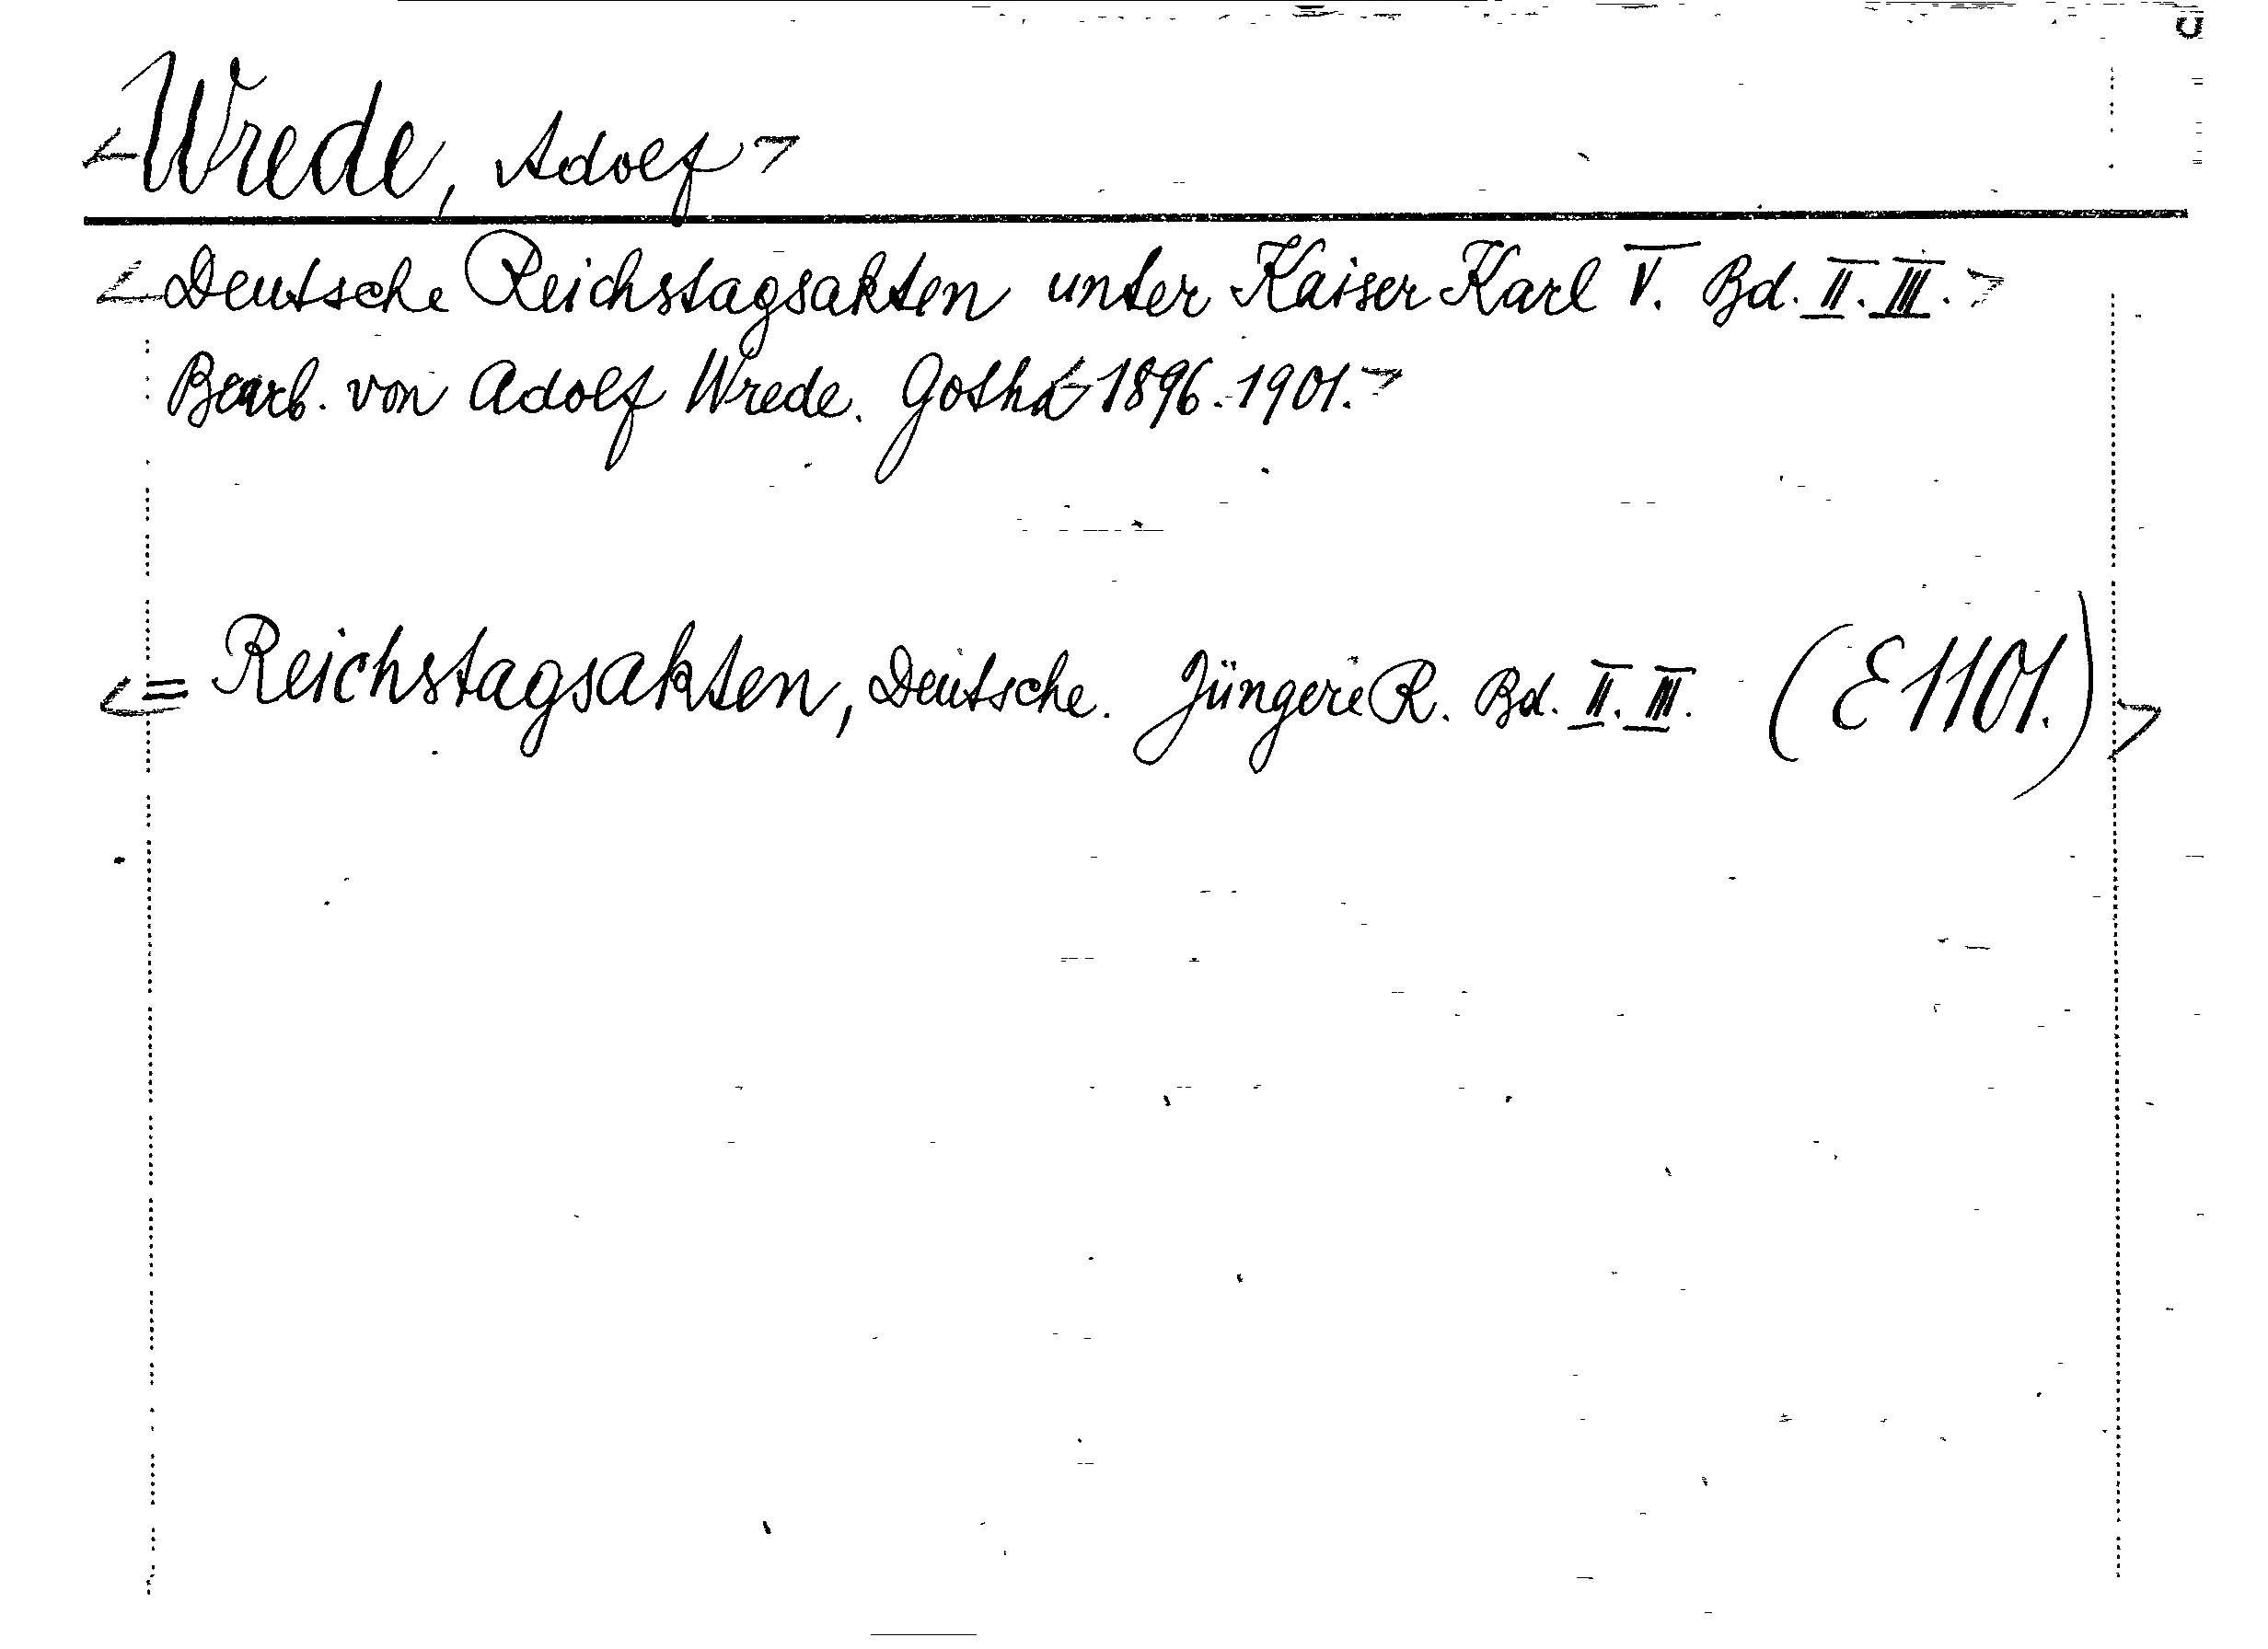 <Wrede, Adolf>
<Deutsche Reichstagsakten unter Kaiser Karl V. Bd. II. III.>
Bearb. von Adolf Wrede. Gotha <1896. 1901.>
<= Reichstagsakten, Deutsche. Jüngere R. Bd. II. III. (E 1101.)>